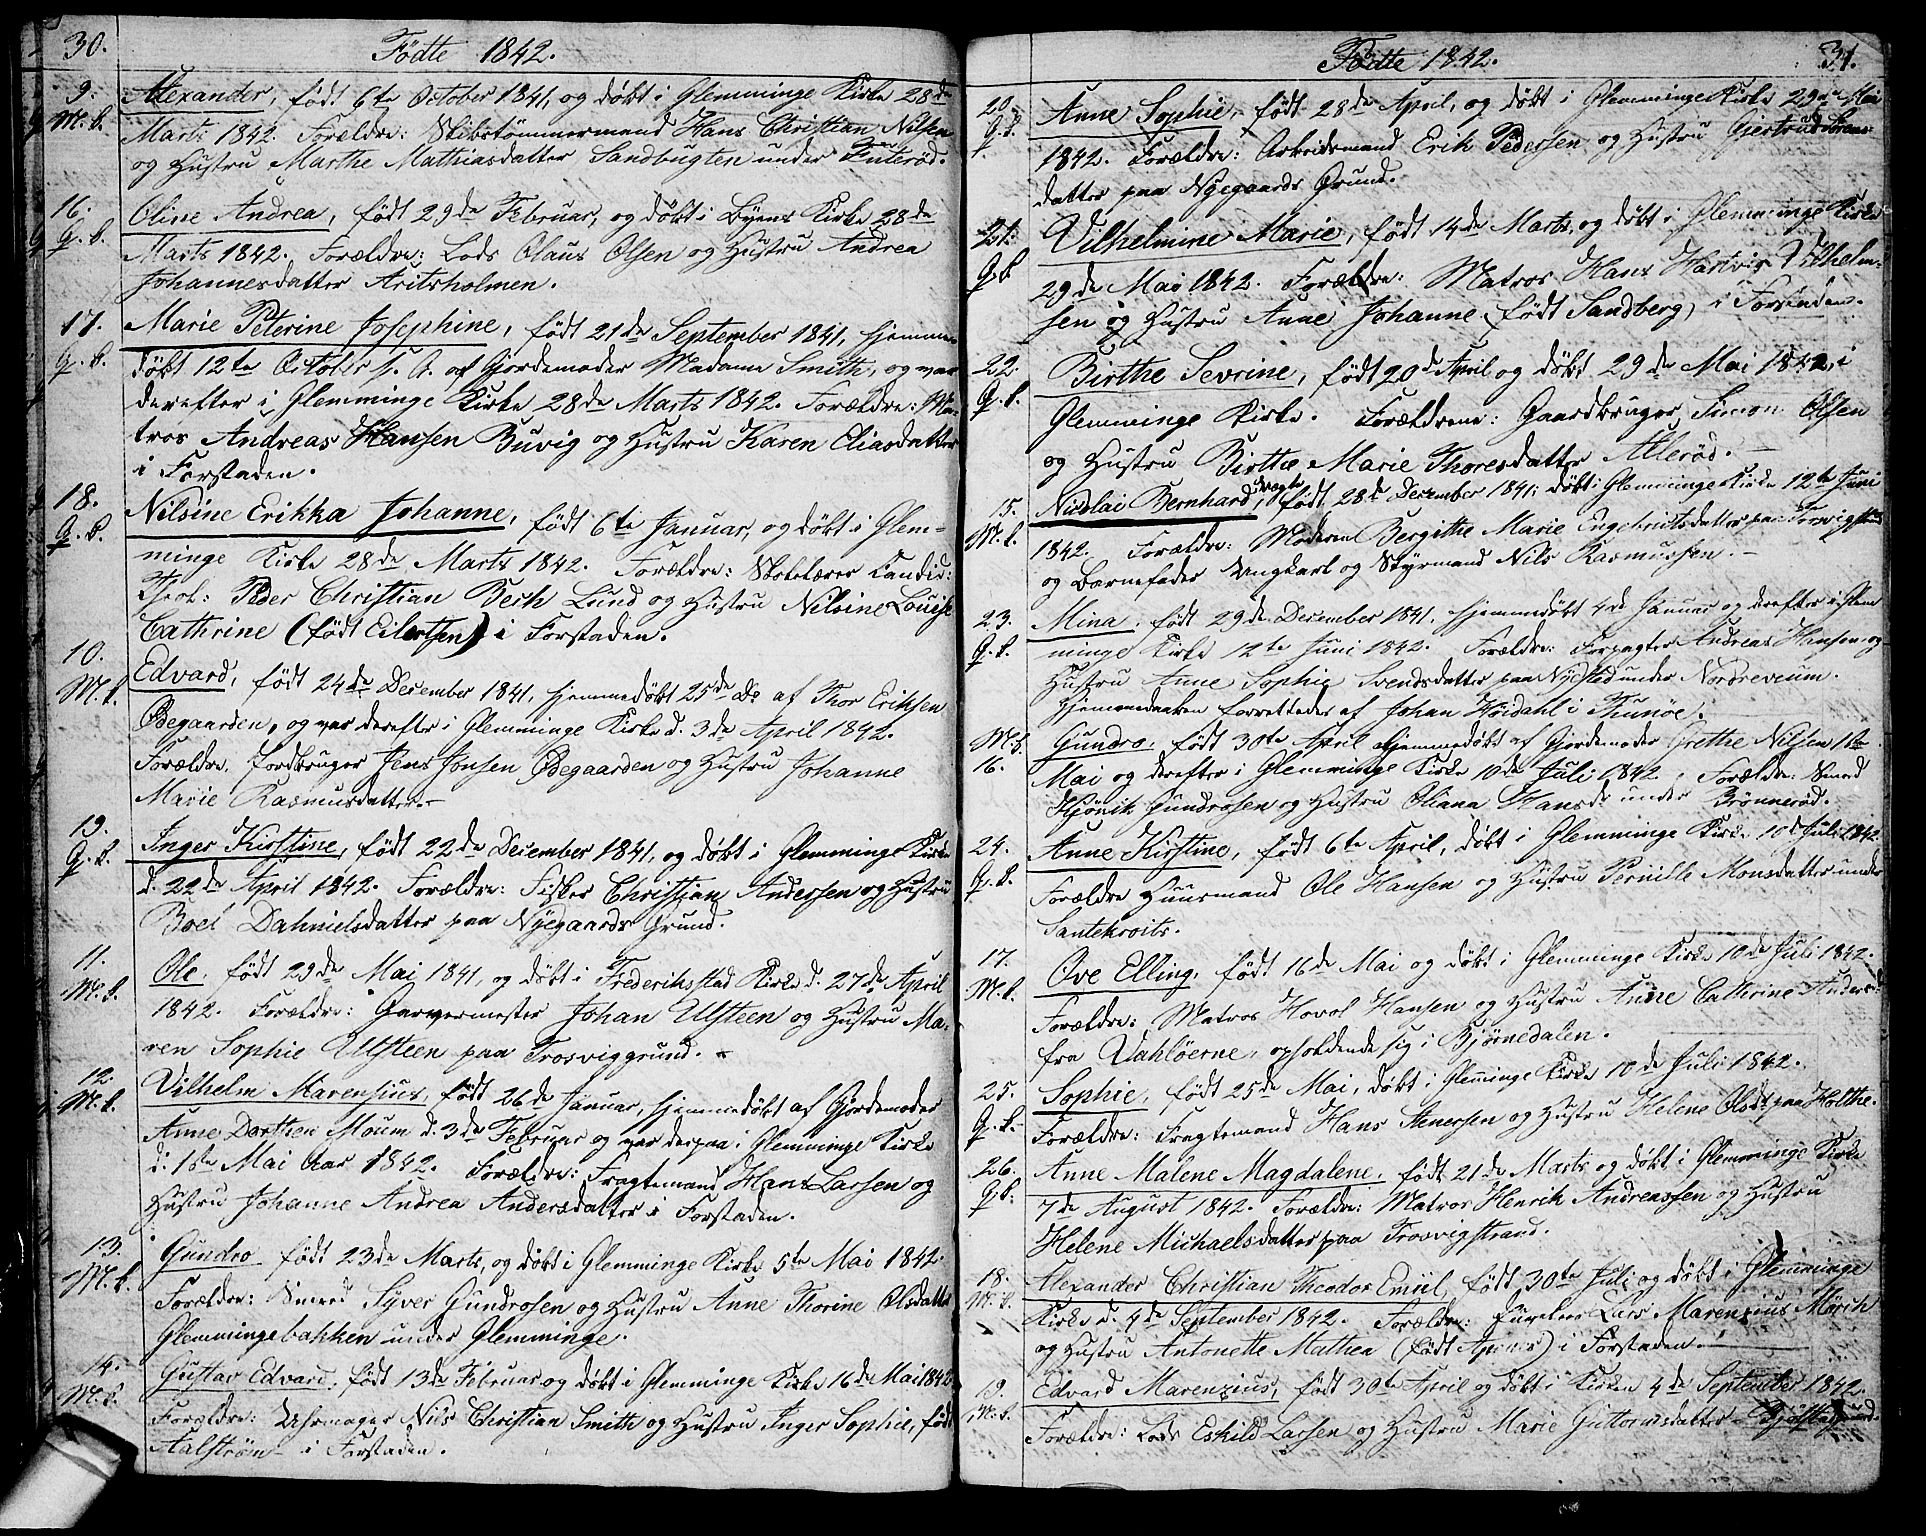 30.
Fødte 1842.
9.
M. k.
Alexander, født 6te October 1841, og døbt i Glemminge Kirke 28de
Marts 1842. Forældre: Skibstømmermand Hans Christian Nilsen
og Hustru Marthe Mathiasdatter Sandbugten under
16.
Q. k.
Oline Andrea, født 29de Februar, og døbt i Byens Kirke 28de
Marts 1842. Forældre: Lods Olaus Olsen og Hustru Andrea
Johannesdatter Aritsholmen.
17.
Q. k.
Marie Peterine Josephine, født 21de September 1841, hjemme-
døbt 12te October s. A. af Gjordemoder Madame Smith, og var
derefter i Glemminge Kirke 28de Marts 1842. Forældre: Ma-
tros Andreas Hansen Buvig og Hustru Karen Eliasdatter
i Forstaden.
18.
Q. k.
Nilsine Erikka Johanne, født 6te Januar, og døbt i Glem-
minge Kirke 28de Marts 1842. Forældre: Skolelærer Candid:
Theol: Peder Christian Bech Lund og Hustru Nilsine Louise
Cathrine (født Eilertsen) i Forstaden.
10.
M. k.
Edvard, født 24de December 1841, hjemmedøbt 25de Do af Thor Eriksen
Ødegaarden, og var derefter i Glemminge Kirke d. 3de April 1842.
Forældre, Jordbruger Jens Jonsen Ødegaarden og Hustru Johanne
Marie Rasmusdatter.-
19.
Q. k.
Inger Kirstine, født 22de December 1841, og døbt i Glemminge Kirke
d. 22de April 1842. Forældre: Fisker Christian Anderssen og Hustru
Boel Dahnielsdatter paa Nyegaards Grund.
11.
M. k.
Ole, født 29de Mai 1841, og døbt i Frederikstad Kirke d. 27de April
1842. Forældre: Garvermester Johan Ulsteen og Hustru Ma-
ren Sophie Ulsteen paa Trosviggrund. -
12.
M. k.
Vilhelm Marensius, født 26de Januar, hjemmedøbt af Gjordemoder
Anne Dorthea Moum d. 3de Februar og var derpaa i Glemminge Kirke
d. 1ste Mai Aar 1842. Forældre: Fragtemand Hans Larsen og
Hustru Johanne Andrea Andersdatter i Forstaden.
13.
M. k.
Gundro født 23de Marts, og døbt i Glemminge Kirke 5te Mai 1842.
Forældre: Smed Syver Gundrosen og Hustru Anne Thorine Olsdatter
Glemmingebakken under Glemminge.
14.
M. k.
Gustav Edvard, født 13de Februar og døbt i Glemminge Kirke 16de Mai 1842
Forældre: Uhrmager Nils Christian Smith og Hustru Inger Sophie, født
Aalstrøm i Forstaden.
31.
Fødte 1842.
20.
Q. k.
Anne Sophie, født 28de April, og døbt i Glemminge Kirke 29de Mai
1842. Forældre: Arbeidsmand Erik Pederssen og Hustru Gjertrud
datter paa Nyegaards Grund.
21.
Q. k
Vilhelmine Marie, født 14de Marts, og døbt i Glemminge Kirke
29de Mai 1842. Forældre: Matros Hans Hartvig Vilhelm-
sen og Hustru Anne Johanne (født Sandberg) i Forstaden.
22.
Q. k.
Birthe Sevrine, født 20de April og døbt 29de Mai 1842, i
Glemminge Kirke. Forældrene: Gaardbruger Simon Olsen
og Hustru Birthe Marie Thoresdatter Allerød. -
15.
M. k.
Nicolai Bernhard, uægte, født 28de December 1841; døbt i Glemminge Kirke 12te Juni
1842. Forældre: Moderen Bergithe Marie Engebritsdatter paa
og Barnefader Ungkarl og Styrmand Nils Rasmussen. -
23.
Q. k.
Mina, født 29de December 1841. hjemmedøbt 4de Januar og derefter i Glem
minge Kirke 12te Juni 1842. Forældre: Forpagter Andreas Hansen og
Hustru Anne Sophie Svendsdatter paa Nysted under Nordreveum.
Hjemmedaaben forrettedes af Johan Høidahl i Thunøe.
M. k.
16.
Gundro, født 30te April hjemmedøbt af Gjordemoder Grethe Nilsen 1ste
Mai og derefter i Glemminge Kirke 10de Juli 1842. Forældre: Smed
Gundrosen og Hustru Oliana Hansdr under Brønnerød.
24.
Q. k.
Anne Kirstine, født 6te April, døbt i Glemminge Kirke 10de Juli 1842.
Forældre Huusmand Ole Hansen og Hustru Pernille Monsdatter under
Santekroits.
17.
M. k.
Ove Elling, født 16de Mai og døbt i Glemminge Kirke 10de Juli 1842.
Forældre: Matros Hovol Hansen og Hustru Anne Cathrine
fra Vahlöerne, opholdende sig i Bjørnedalen.
25.
Q. k.
Sophie, født 25de Mai, døbt i Glemminge Kirke 10de Juli 1842.
Forældre: Fragtemand Hans Stenersen og Hustru Helene Olsdt paa Holthe.
26.
Q k.
Anne Malene Magdalene, født 21de Marts og døbt i Glemminge Kirke
7de August 1842. Forældre: Matros Henrik Andreassen og Hustru
Helene Michaelsdatter paa Trosvigstrand.
18.
M. k.
Alexander Christian Theodor Emil, født 30te Juli og døbt i Glemminge
Kirke d. 4de September 1842. Forældre: Lars Marenzius Mørch
og Hustru Antonette Mathea (født) i Forstaden.
19.
M. k.
Edvard Marenzius, født 30te April og døbt i Kirken 4de September 1842.
Forældre: Lods Eskild Larsen og Hustru Marie Guttormsdatter